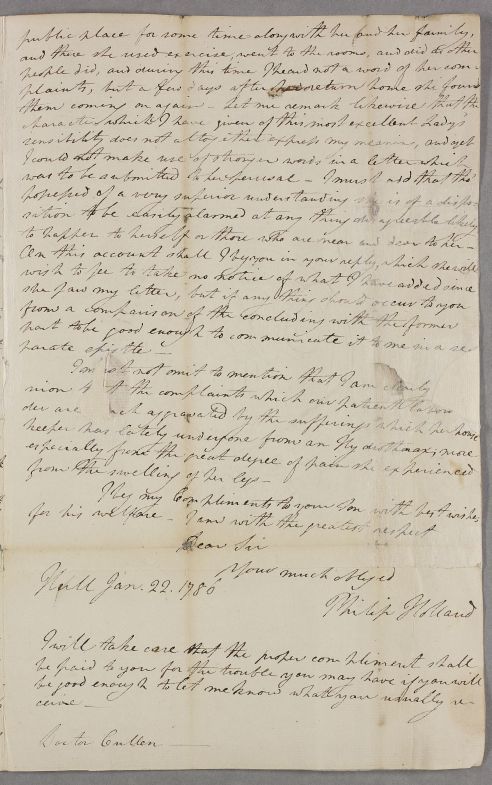 public place for some time along with her and her family,
and there she used exercise, went to the rooms, and did as other
people did, and during this time I heard not a word of her com-
plaints, but a few days after her return home she found
them coming on again – Let me remark likewise that the
character which I have given of this most excellent Lady's
sensibility does not altogether express my meaning, and yet
I could not make use of stronger words in a letter which
was to be submitted to her perusal – I must add that tho'
possessed of a very superior understanding she is of a dispo-
sition to be easily alarmed at any thing disagreeable likely
to happen to herself or those who are near and dear to her –
On this account shall I beg you in your reply, which she will
wish to see to take no notice of what I have added since
she saw my letter, but if any thing should occur to you
from a comparison of the concluding with the former
part to be good enough to communicate it to me in a se-
parate epistle –
I must not omit to mention that I am clearly
the complaints which our patient labors
der are much aggravated by the sufferings which her house
keeper has lately undergone from an Hydrothorax, more
especially from the great degree of pain she experienced
from the swelling of her legs –
I beg my Compliments to your Son with best wishes
for his welfare – I am with the greatest respect
Dear Sir
Your much obliged
Hull Jan. 22. 1786
Philip Holland
I will take care that the proper compliment shall
be paid to you for the trouble you may have if you will
be good enough to let me know what you usually re-
ceive –
Doctor Cullen –